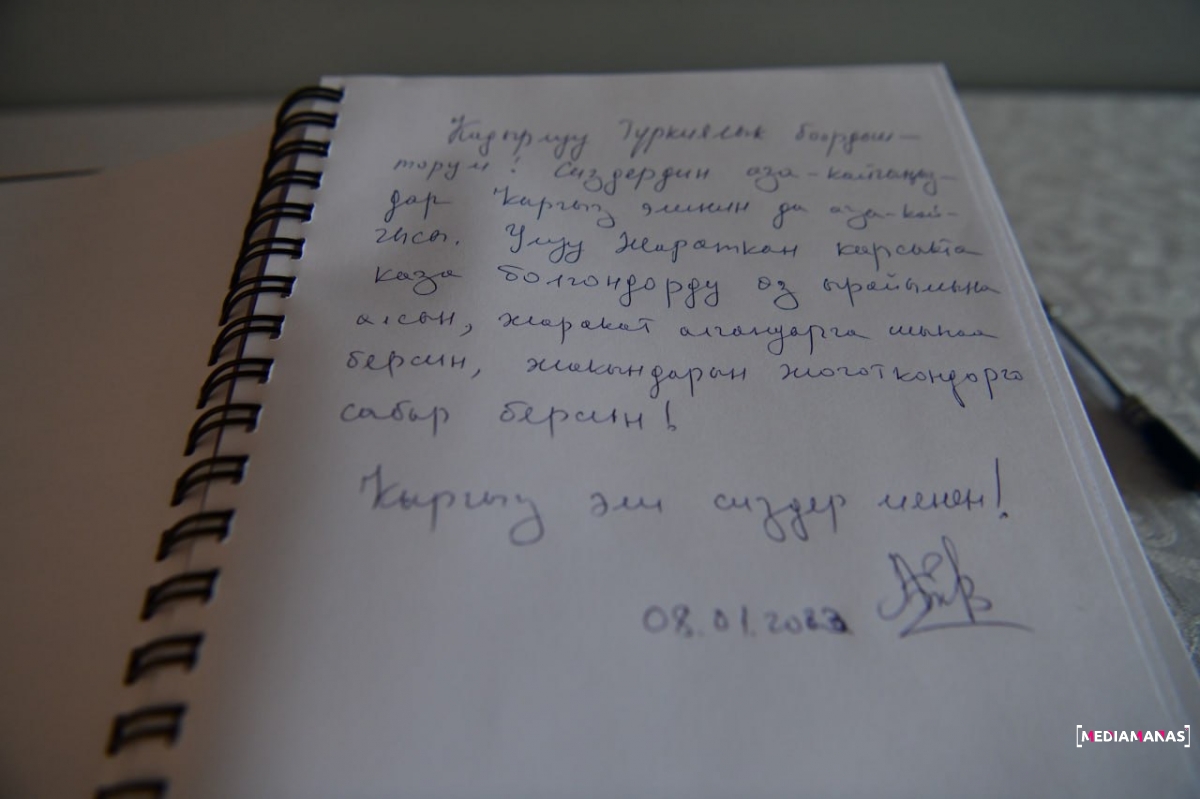 Кадырлуу Түркиялык боордош-
торум! Сиздердин аза-кайгыңыз-
дар Кыргыз элинин да аза-кай-
гысы. Улуу Жараткан кырсыкта
каза болгондорду өз ырайымына
алсын, жаракат алгандарга шыпаа
берсин, жакындарын жоготкондорго
сабыр берсин!
Кыргыз эли сиздер менен!
08.01.2023
[MEDIAMANAS]